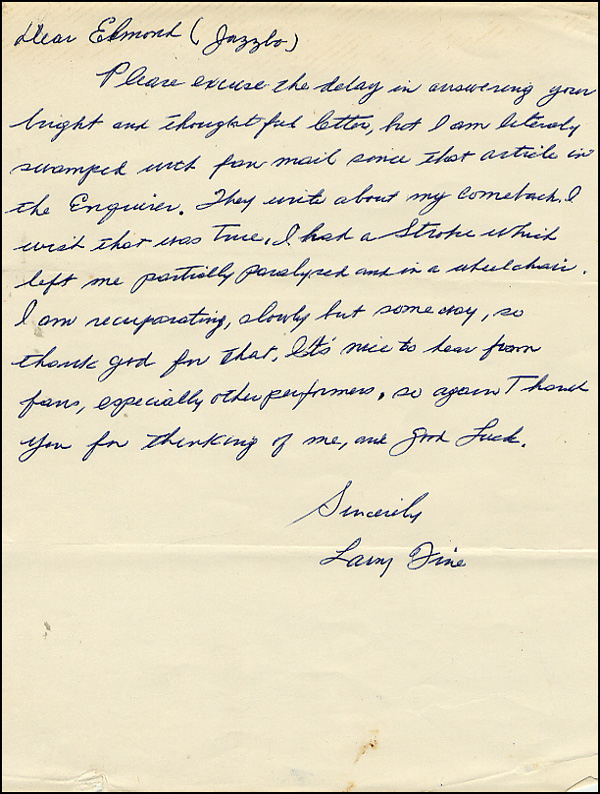 Dear Edmond (Jazzbo)
Please excuse the delay in answering your
bright and thoughtful letter, but I am literaly
swamped with fan mail since that article in
the Enquirer. They write about my comeback. I
wish that was true. I had a Stroke which
left me partially paralysed and in a wheelchair.
I am recuparating, slowly but some way, so
thank god for that. It's nice to hear from
fans, especially other performers, so again Thank
You for thinking of me, and Good Luck.
Sincerily
Larry Fine